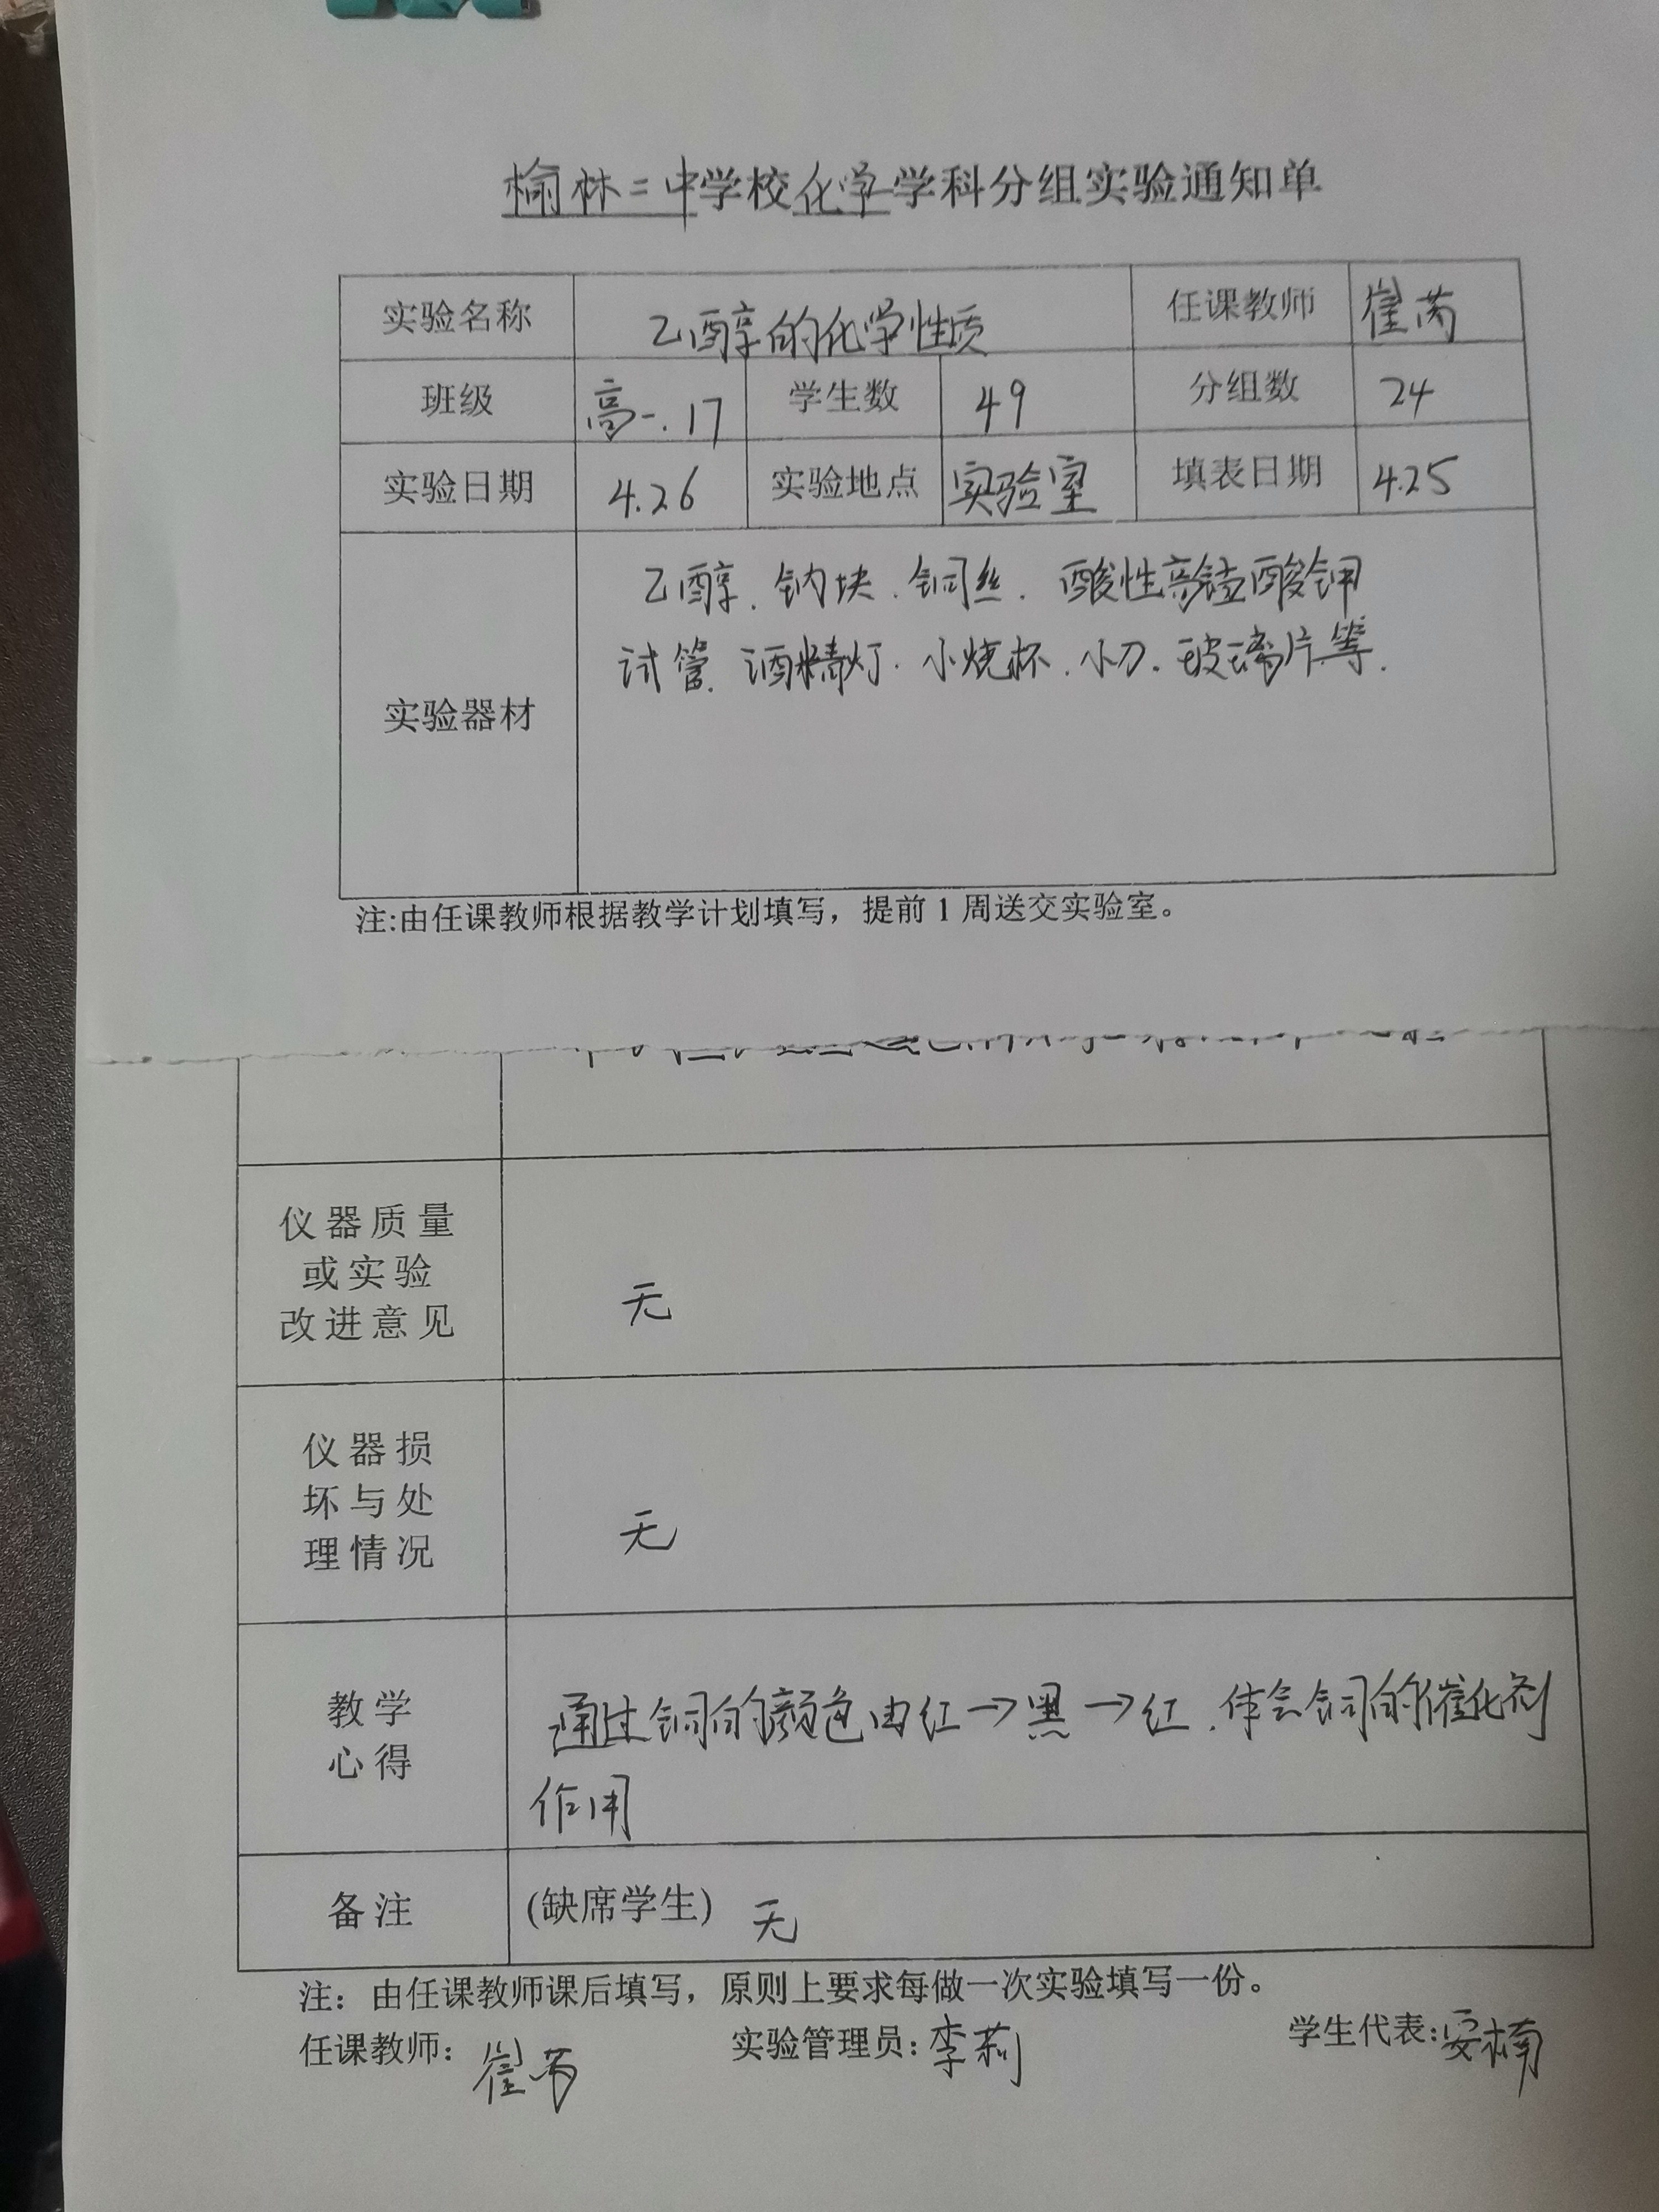 榆林二中学校化学学科分组实验通知单
实验名称 乙醇的化学性质 任课教师 崔芮
班级 高一.17 学生数 49 分组数 24
实验日期 4.26 实验地点 实验室 填表日期 4.25
实验器材
乙醇、钠块、铜丝、酸性高锰酸钾
试管、酒精灯、小烧杯、小刀、玻璃片等.
注:由任课教师根据教学计划填写，提前1周送交实验室。
仪器质量
或实验
改进意见
无
仪器损
坏与处
理情况
无
教学
心得
通过铜的颜色由红→黑→红,体会铜的催化剂
作用
备注 (缺席学生) 无
注：由任课教师课后填写，原则上要求每做一次实验填写一份。
任课教师：崔芮 实验管理员：李莉 学生代表：安楠